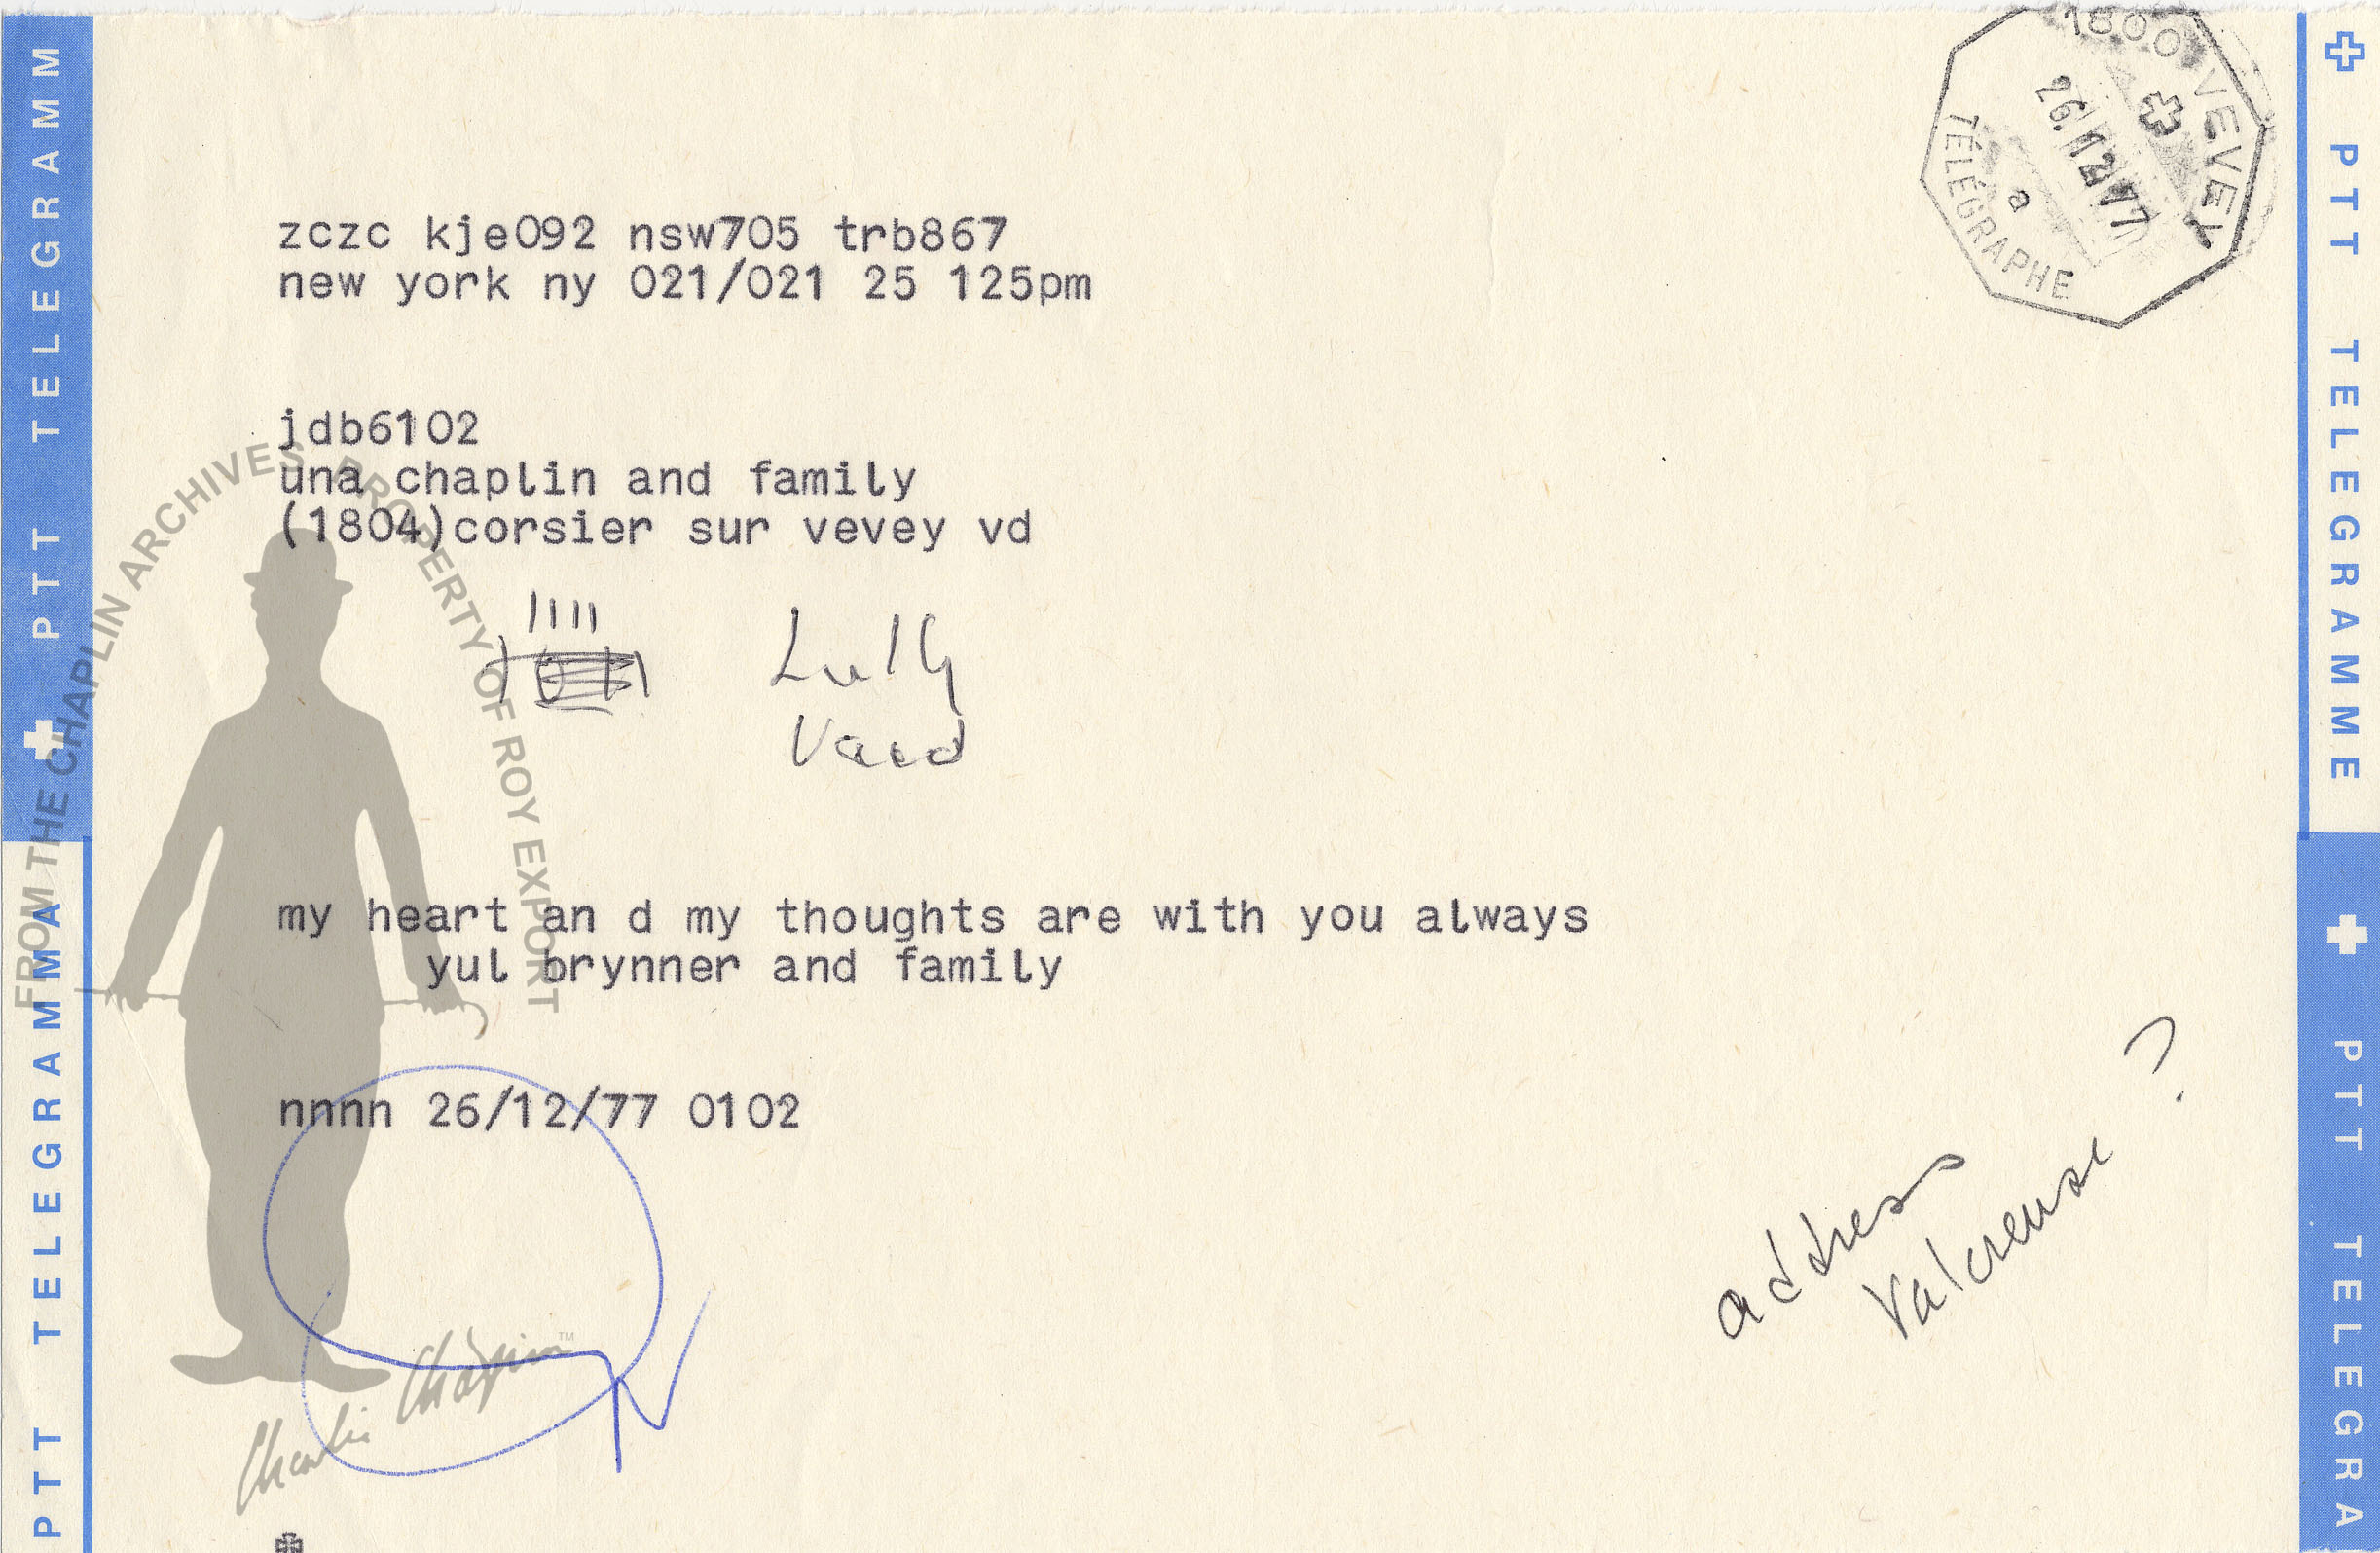 PTT TELEGRAMM
PTT TELEGRAMMA
1800 VEVEY
26.12.77
a
TÉLÉGRAPHE
zczc kje092 nsw705 trb867
new york ny 021/021 25 125pm
jdb6102
una chaplin and family
(1804)corsier sur vevey vd
Lully
Vaud
my heart an d my thoughts are with you always
yul brynner and family
nnnn 26/12/77 0102
address
Valcreuse ?
FROM THE CHAPLIN ARCHIVES PROPERTY OF ROY EXPORT
Charlie Chaplin™
PTT TELEGRAMME
PTT TELEGRA